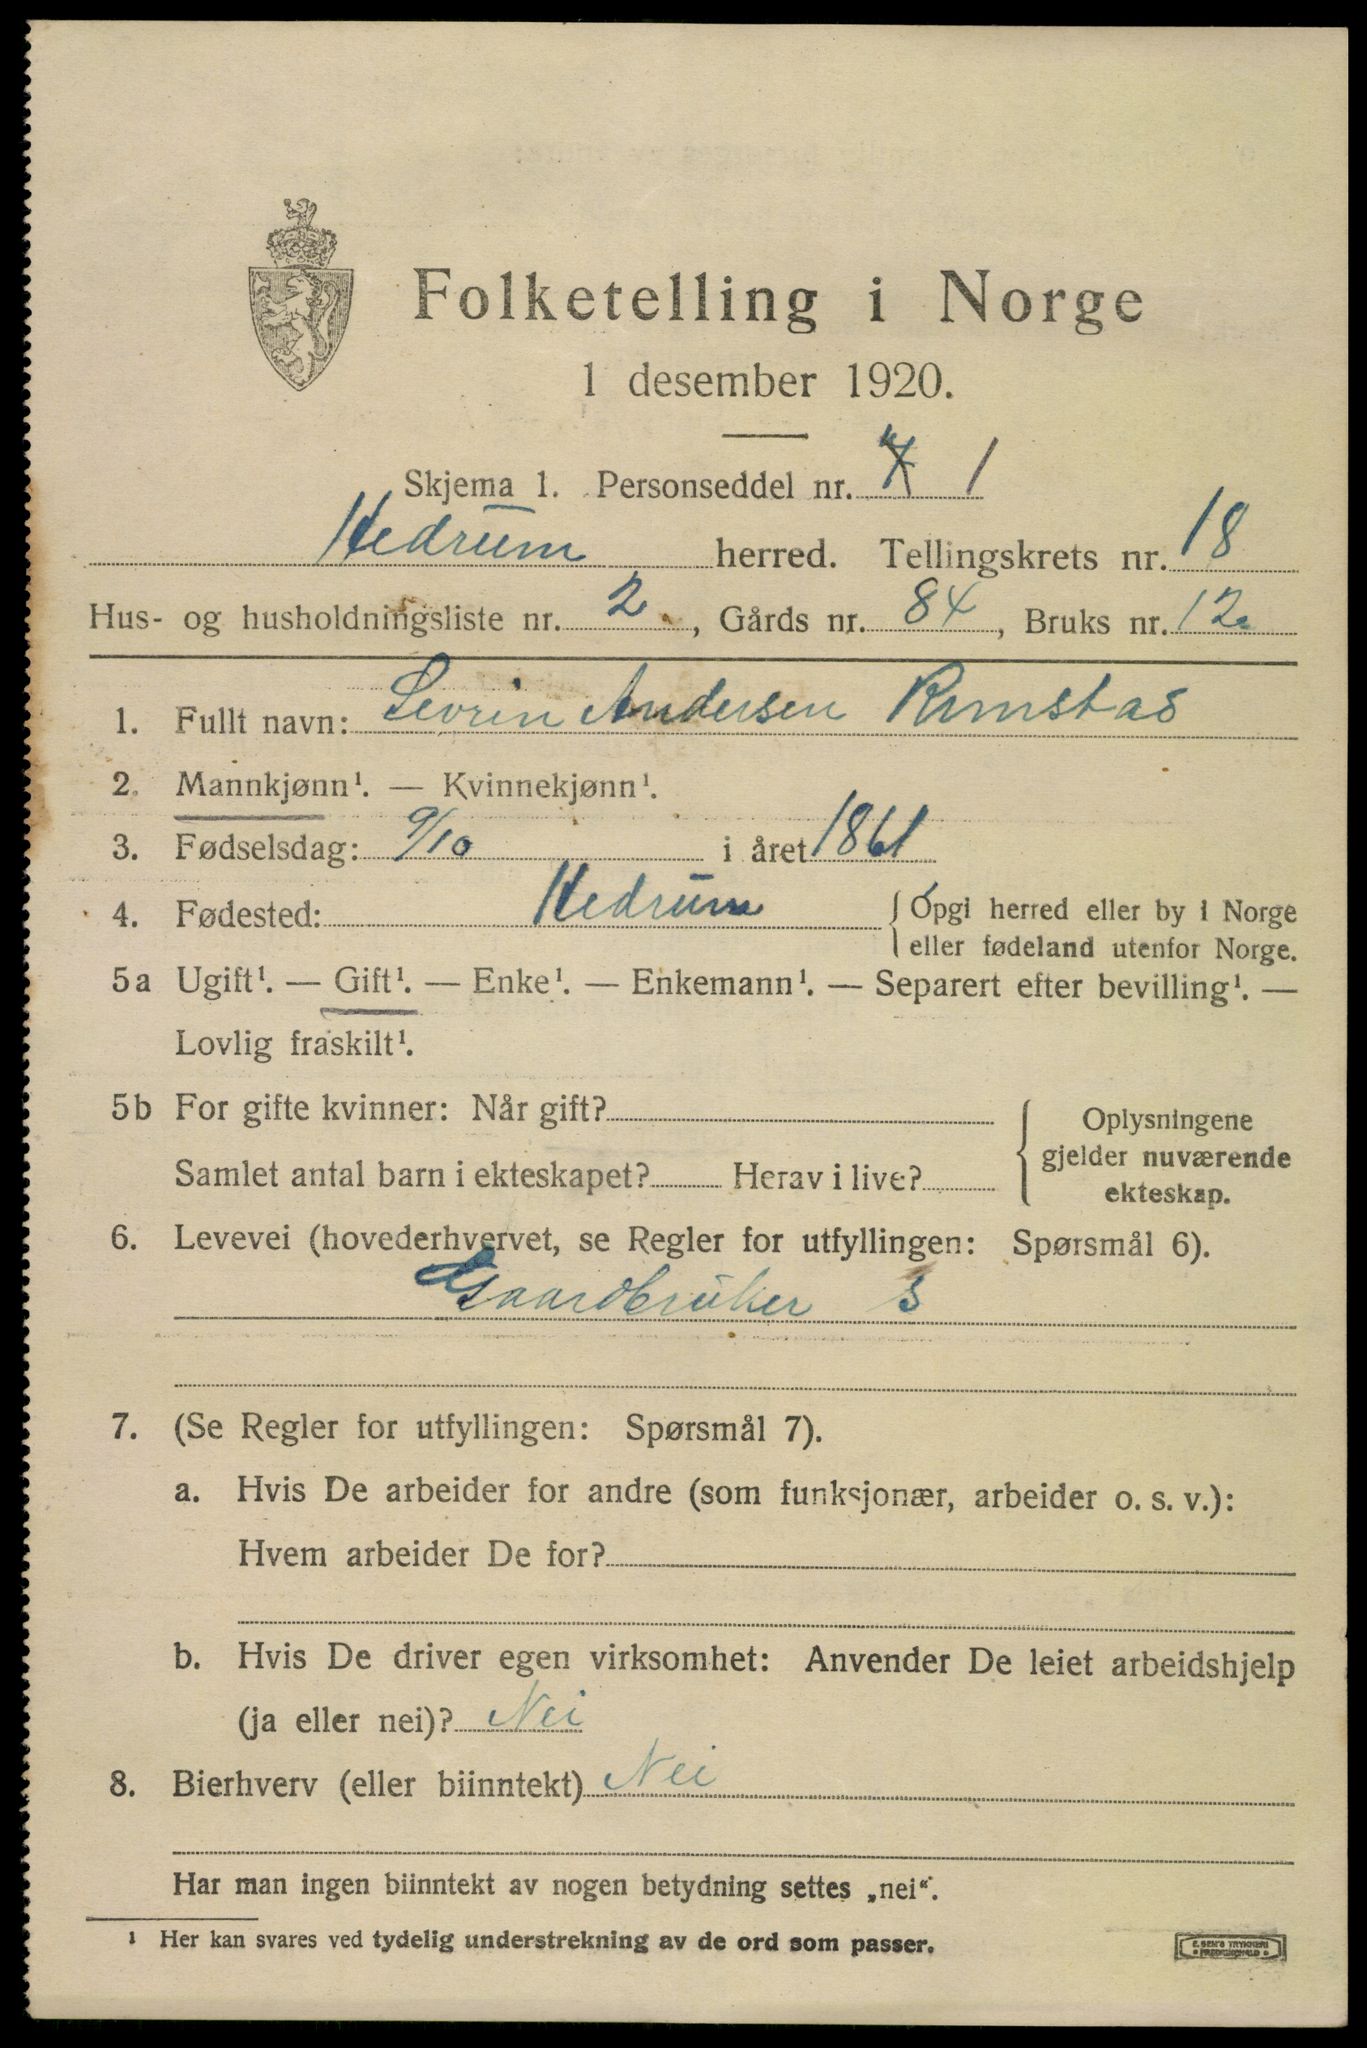 Folketelling i Norge
1 desember 1920.
Skjema 1. Personseddel nr. 1
Hedrum herred. Tellingskrets nr. 18
Hus- og husholdningsliste nr. 2, Gårds nr. 84, Bruks nr. 12
1. Fullt navn: Sevrin Andersen Rimstas
2. Mannkjønn¹. — Kvinnekjønn¹.
3. Fødselsdag: 9/10 i året 1861
4. Fødested: Hedrum { Opgi herred eller by i Norge
eller fødeland utenfor Norge.
5a Ugift¹. — Gift¹. — Enke¹. — Enkemann¹. — Separert efter bevilling¹. —
Lovlig fraskilt¹.
5b For gifte kvinner: Når gift?
Samlet antal barn i ekteskapet? Herav i live?
{ Oplysningene
gjelder nuværende
ekteskap.
6. Levevei (hovederhvervet, se Regler for utfyllingen: Spørsmål 6).
Gaardbruker S
7. (Se Regler for utfyllingen: Spørsmål 7).
a. Hvis De arbeider for andre (som funksjonær, arbeider o. s. v.):
Hvem arbeider De for?
b. Hvis De driver egen virksomhet: Anvender De leiet arbeidshjelp
(ja eller nei)? Nei
8. Bierhverv (eller biinntekt) Nei
Har man ingen biinntekt av nogen betydning settes „nei“.
¹ Her kan svares ved tydelig understrekning av de ord som passer.
E. SEM'S TRYKKERI
FREDRIKSHALD